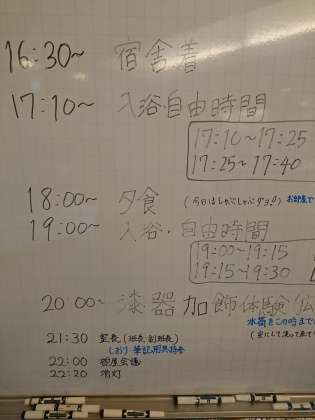 16:30~ 宿舎着
17:10~ 入浴・自由時間
17:10~17:25
17:25~17:40
18:00~ 夕食 (今日はしゃぶしゃぶダヨ!!) お部屋で
19:00~ 入浴・自由時間
19:00~19:15
19:15~19:30
20:00~ 漆器加飾体験(
水筒をこの時まで
21:30 室長(班長、副班長)
(しおり・筆記用具持参
22:00 部屋会議
22:20 消灯